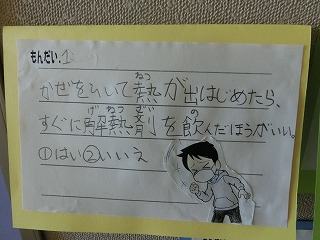 もんだい.①
かぜをひいて熱が出はじめたら、
すぐに解熱剤を飲んだほうがいい。
①はい②いいえ